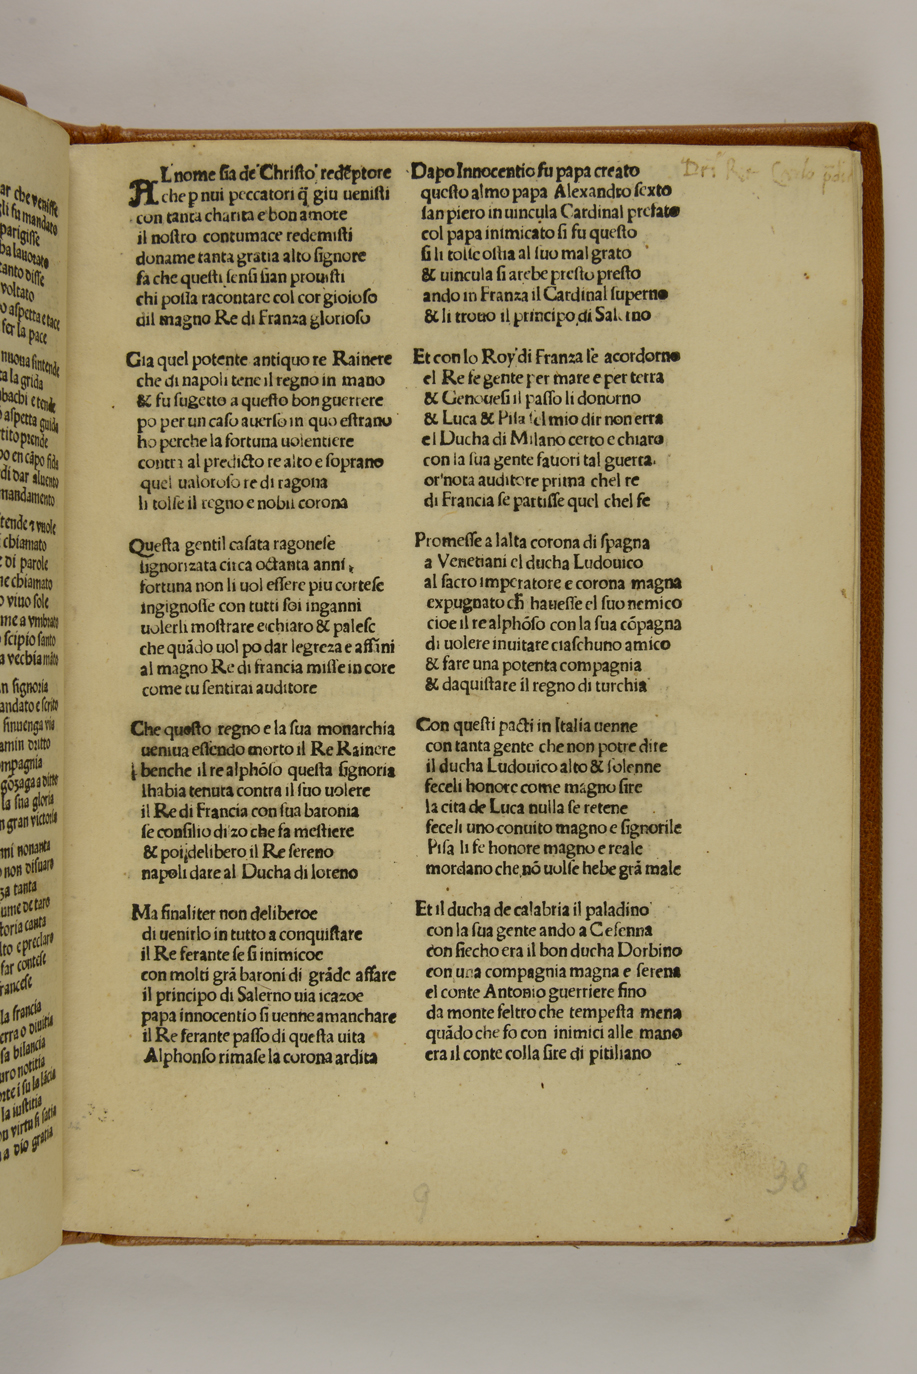 AL nome sia de Christo redẽptore
che p nui peccatori q̃ giu uenisti
con tanta charita e bon amore
il nostro contumace redemisti
doname tanta gratia alto signore
fa che questi sensi sian prouisti
chi possa racontare col cor gioioso
dil magno Re di Franza glorioso
Gia quel potente antiquo re Rainere
che di napoli tene il regno in mano
& fu sugetto a questo bon guerrere
po per un caso auerso in quo estrano
ho perche la fortuna uolentiere
contra al predicto re alto e soprano
quel ualoroso re di ragona
li tolse il regno e nobil corona
Questa gentil casata ragonese
signorizata circa octanta anni
fortuna non li uol essere piu cortese
ingignosse con tutti soi inganni
uolerli mostrare e chiaro & palese
che quãdo uol po dar legreza e affãni
al magno Re di francia misse in core
come tu sentirai auditore
Che questo regno e la sua monarchia
ueniua essendo morto il Re Rainere
benche il re alphõso questa signoria
lhabia tenuta contra il suo uolere
il Re di Francia con sua baronia
se consilio di zo che fa mestiere
& poi delibero il Re sereno
napoli dare al Ducha di loreno
Ma finaliter non deliberoe
di uenirlo in tutto a conquistare
il Re ferante se si inimicoe
con molti grã baroni di grãde affare
il principo di Salerno uia icazoe
papa innocentio si uenne a manchare
il Re ferante passo di questa uita
Alphonso rimase la corona ardita
Dapo Innocentio fu papa creato
questo almo papa Alexandro sexto
san piero in uincula Cardinal prefato
col papa inimicato si fu questo
si li tolle ostia al suo mal grato
& uincula si arebe presto presto
ando in Franza il Cardinal superno
& li trouo il principo di Salerno
Et con lo Roy di Franza se acordorno
el Re fe gente per mare e per terra
& Genouesi il passo li donorno
& Luca & Pisa sel mio dir non erra
el Ducha di Milano certo e chiaro
con la sua gente fauori tal guerra
or nota auditore prima chel re
di Francia se partisse quel chel fe
Promesse a lalta corona di spagna
a Venetiani el ducha Ludouico
al sacro imperatore e corona magna
expugnato cħ hauesse el suo nemico
cioe il re alphõso con la sua cõpagna
di uolere inuitare ciaschuno amico
& fare una potenta compagnia
& daquistare il regno di turchia
Con questi pacti in Italia uenne
con tanta gente che non potre dire
il ducha Ludouico alto & solenne
feceli honore come magno sire
la cita de Luca nulla se retene
feceli uno conuito magno e signorile
Pisa li fe honore magno e reale
mordano che nõ uolse hebe grã male
Et il ducha de calabria il paladino
con la sua gente ando a Cesenna
con siecho era il bon ducha Dorbino
con una compagnia magna e serena
el conte Antonio guerriere fino
da monte feltro che tempesta mena
quãdo che fo con inimici alle mano
era il conte colla sire di pitiliano
9
38